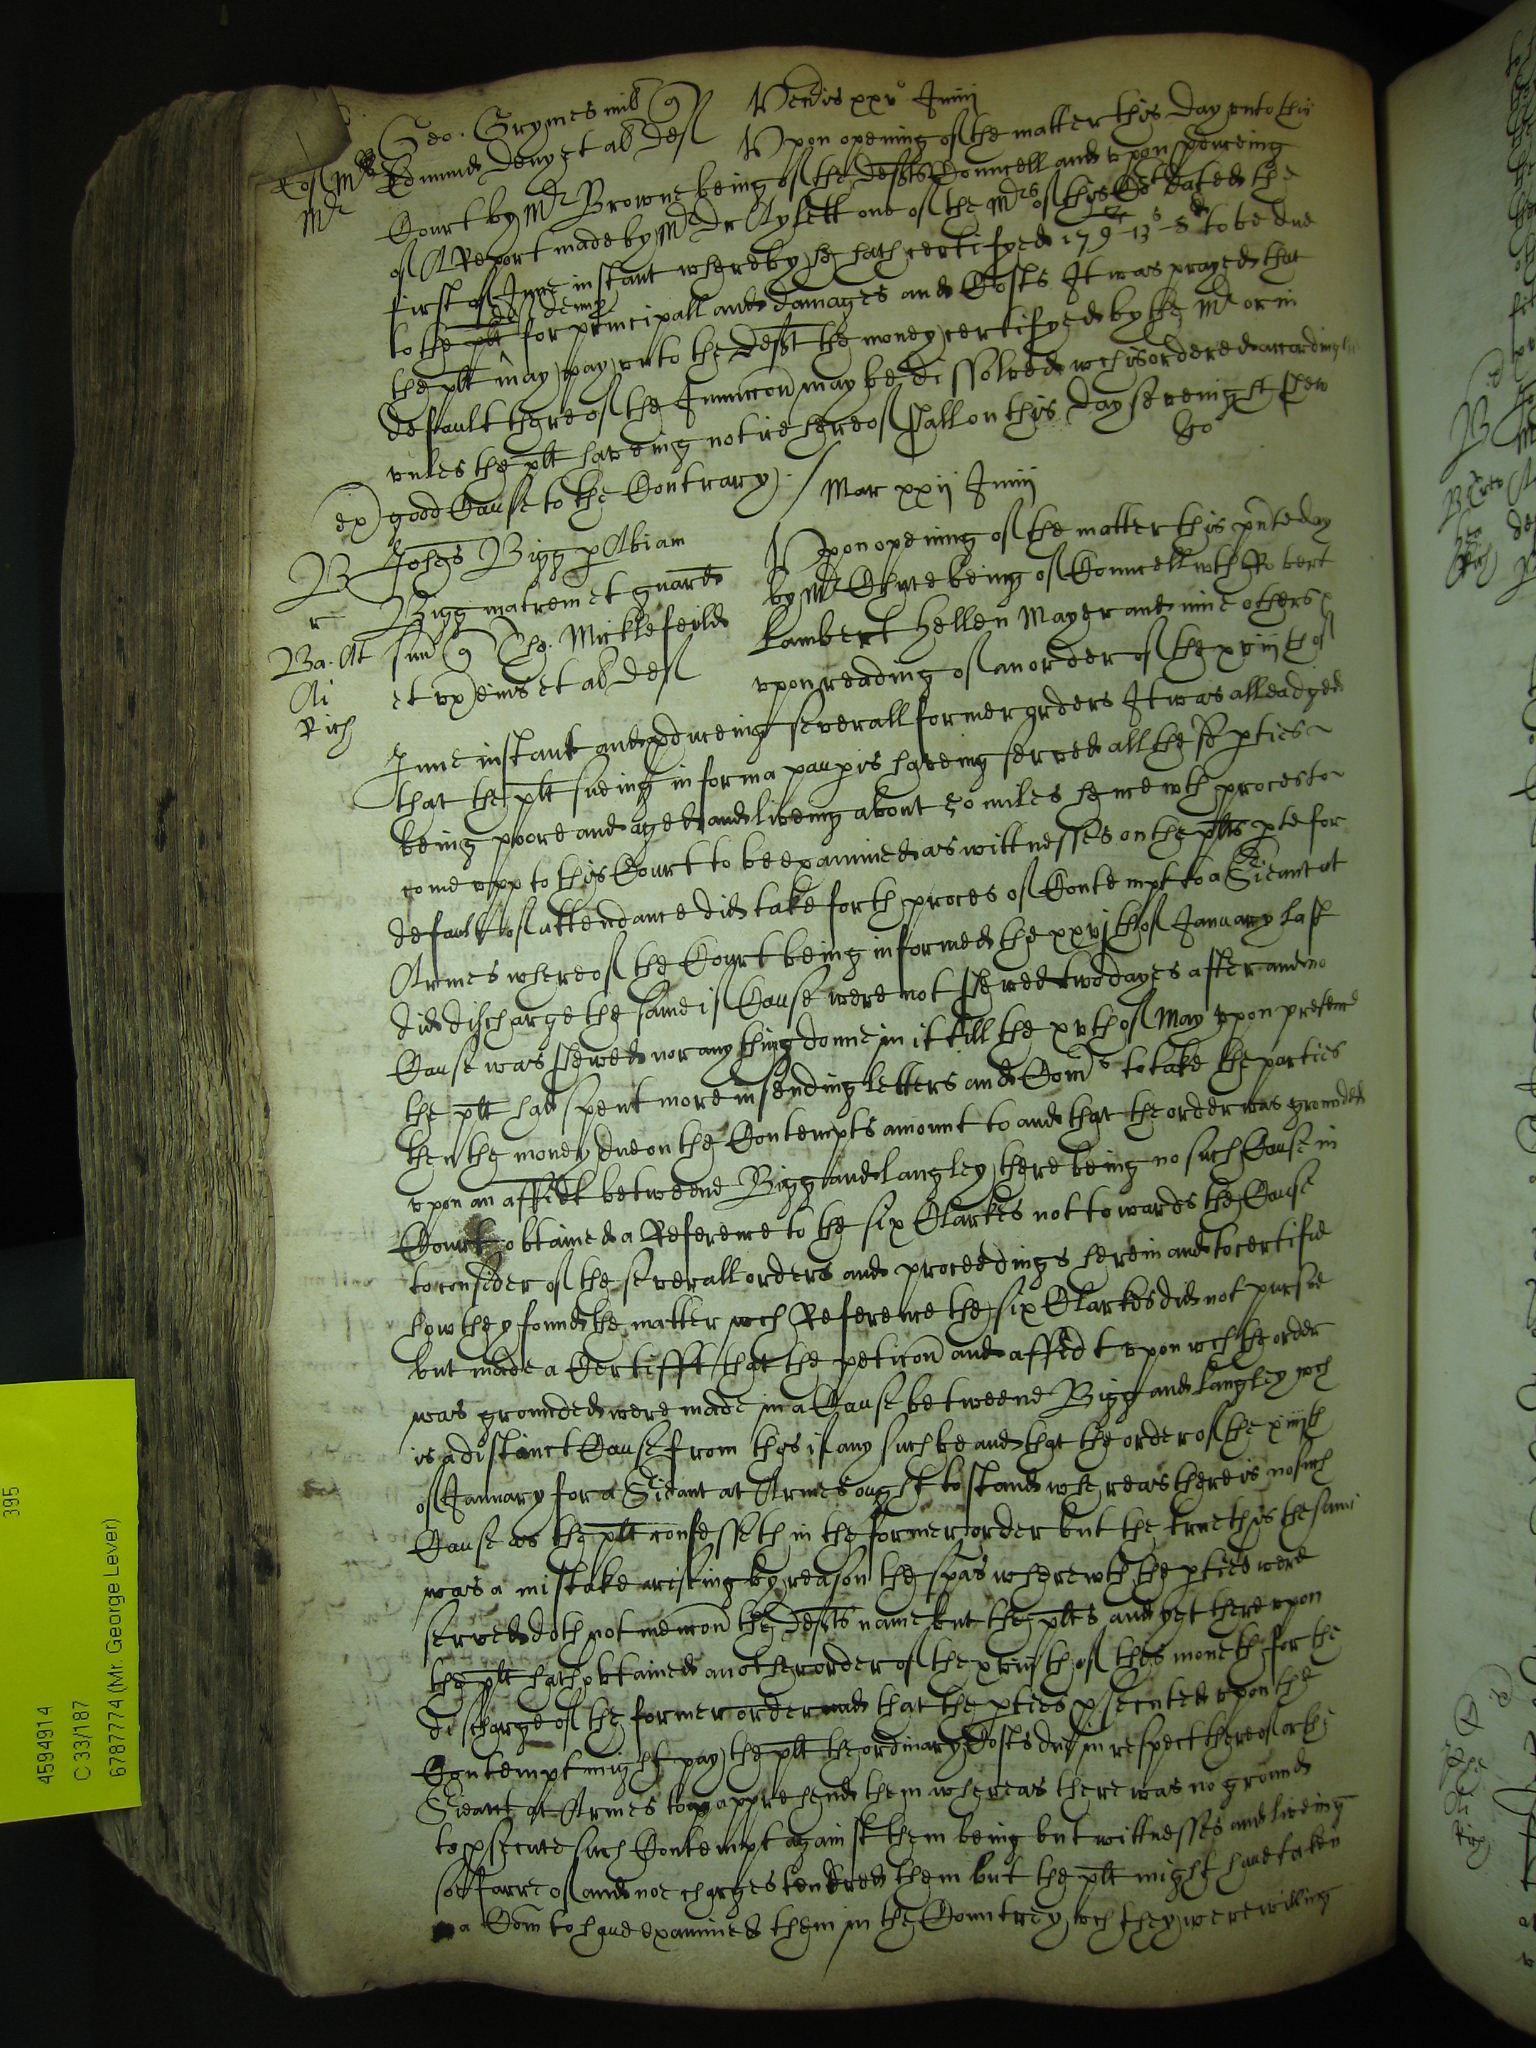 Veneris xxv° Junij
Geo. Grymes mil
Edmund Deny et al def
Upon opening of the matter this day unto this
Court by Mr Browne being of the defts Councell and upon pruseing
of A Report made by Mr Dr Aylett one of the Mrs of this Cort dated the
first of June instant whereby he hath certifyed 179 - 13 - 8 to be due
to the plt for principall and damages and Costs It was prayed that
the plt may pay unto the deft the money certifyed by the Mr or in
default thereof the Iniuncon may be dissolved wch is ordered accordingly
unles the plt haveing notice hereof shall on this day sevenight shew
good Cause to the Contrary
Mar xxij Junij
Johes Bigg p Abiam
Bigg matrem et guard
suu Tho. Micklefeild
et ux eius et al def
Ba. At
Ai
Rich
Upon opening of the matter this pnte day
by Mr Chute being of Councell wth Robert
Lambert Hellen Mayer and nine others
upon reading of an order of the xviijth of
June instant and pduceing severall former orders It was alleadged
that the plt sueing in forma paupis haveing served all the sd pties
being poore and aged and liveing about 50 miles hence wth proces to
come upp to this Court to be examined as wittnesses on the plts pte for
default of attendance did take forth proces of Contempt to a Sieant at
Armes whereof the Court being informed the xxvjth of January last
did discharge the same if Cause were not shewed two dayes after and no
Cause was shewed nor any thing donne in it till the xvth of May upon pretence
the plt had spent more in sending letters and Coms to take the parties
then the money due on the Contempts amount to and that the order was grounded
upon an affidt betweene Bigg and Langley there being no such Cause in
Court obtained a Reference to the six Clarkes not towards the Cause
to consider of the severall orders and proceedings herein and to certifie
how they found the matter wch Reference the six Clarkes did not pursue
but made a Certifft that the peticon and affidt upon wch the order
was grounded were made in a Cause betweene Bigg and Langley wch
is a distinct Cause from this if any such be and that the order of the xiiijth
of January for a Sieant at Armes ought to stand whereas there is no such
Cause as the plt confesseth in the former order but the trueth is the same
was a mistake ariseing by reason the spas wherewth the pties were
served doth not mencon the defts name but the plts and yet thereupon
the plt hath obtained another order of the xviijth of this moneth for the
discharge of the former order and that the pties psecuted upon the
Contempt might pay the plt the ordinary Costs due in respect thereof or the
Sieant at Armes to apprehend them whereas there was no ground
to psecute such Contempt against them being but wittnesses and liveing
so farre of and noe charges tendred them but the plt might have taken
a Com to have examined them in the Countrey wch they were willing
395
4594914
C 33/187
6787774 (Mr. George Lever)